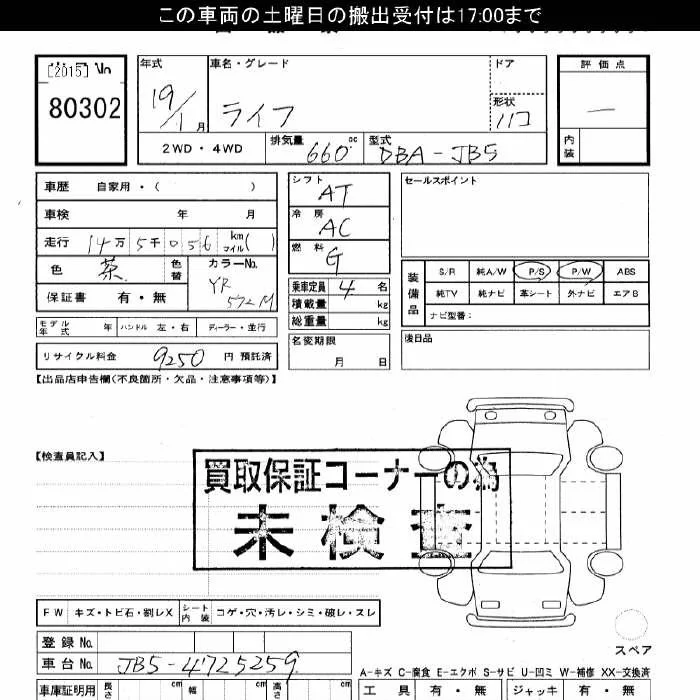 この車両の土曜日の搬出受付は17:00まで
[2015] No
80302
年式 19/1月
車名・グレード ライフ
ドア
形状 ハコ
評価点 —
内装
2WD・4WD
排気量 660 cc
型式 DBA-JB5
車歴 自家用・( )
車検 年 月
走行 14万5千056 km マイル( )
色 茶 色替
カラーNo. YR572M
保証書 有・無
モデル年式 年 ハンドル 左・右 ディーラー・並行
リサイクル料金 9250 円 預託済
シフト AT
冷房 AC
燃料 G
乗車定員 4 名
積載量 kg
総重量 kg
名変期限
月 日
セールスポイント
装備品
S/R 純A/W P/S P/W ABS
純TV 純ナビ 革シート 外ナビ エアB
ナビ型番:
後日品
【出品店申告欄(不良箇所・欠品・注意事項等)】
【検査員記入】
買取保証コーナーの為
未検査
FW キズ・トビ石・割レX シート内装 コゲ・穴・汚レ・シミ・破レ・スレ
登録 No.
車台 No. JB5-4725259
スペア
A-キズ C-腐食 E-エクボ S-サビ U-凹ミ W-補修 XX-交換済
車庫証明用 長さ cm 幅 cm 高さ cm
工具 有・無 ジャッキ 有・無